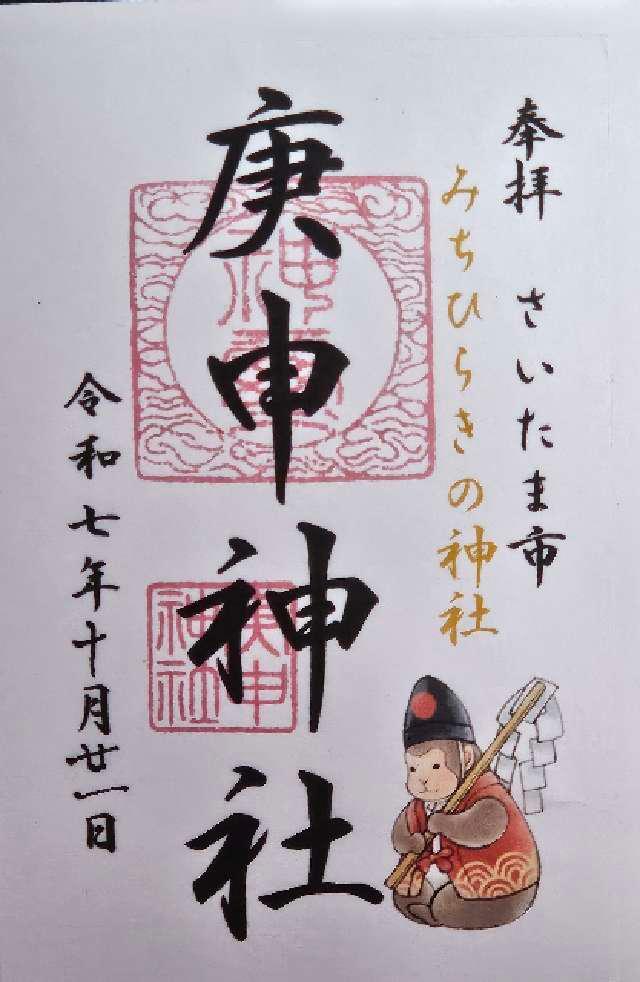 奉拝 さいたま市
みちひらきの神社
庚申神社
神璽
庚申
神社
令和七年十月廿一日